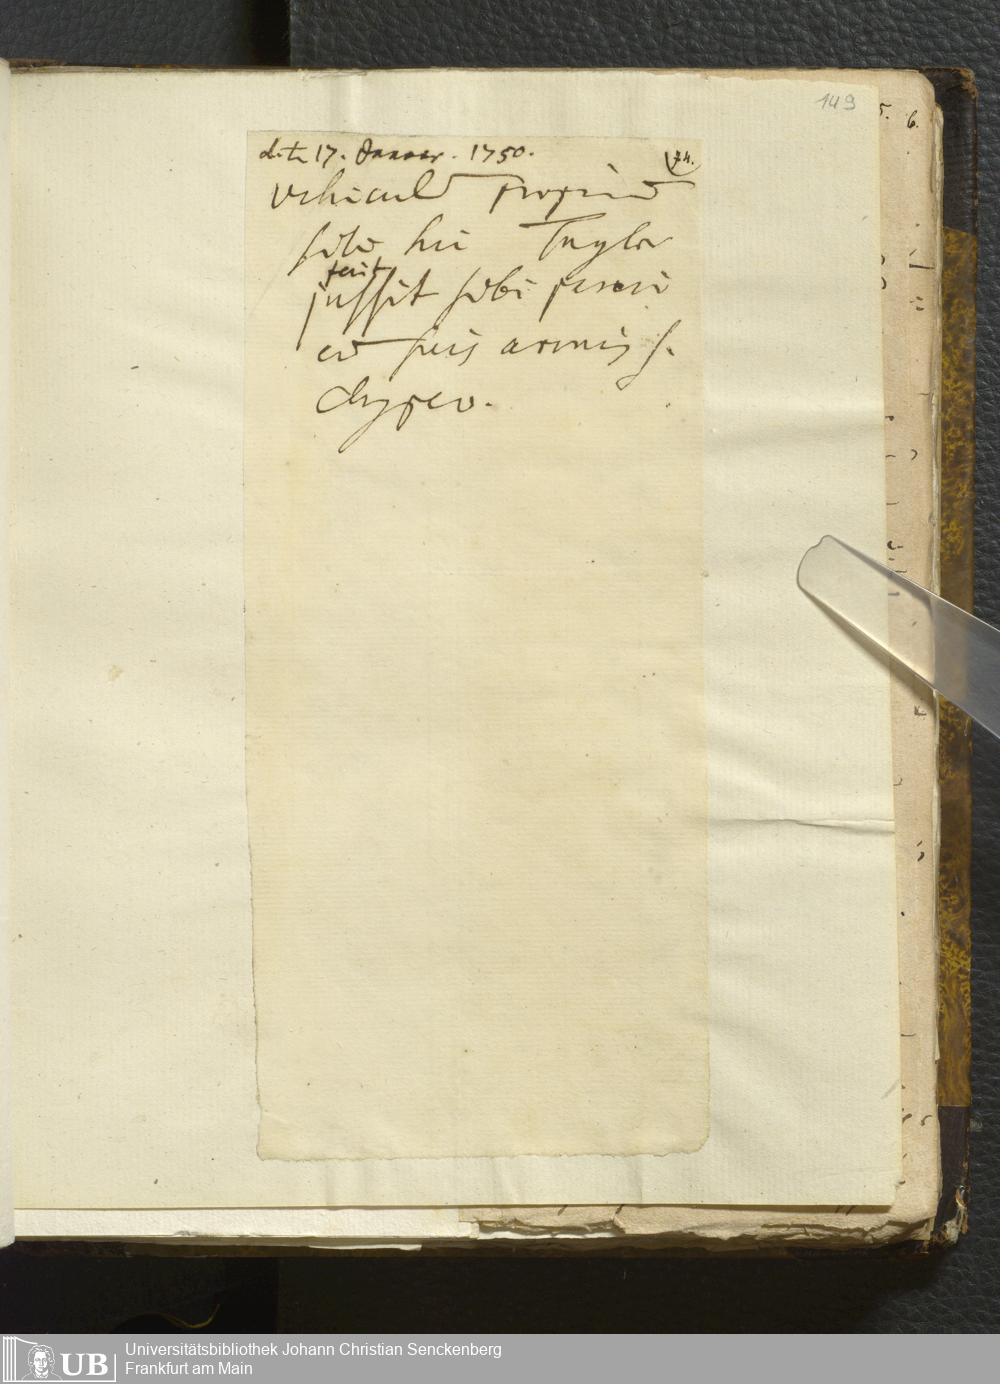 149
5. 6.
d. 17. Januar. 1750. 74.
vehicul propri
sibi hic Taylor
fecit
jussit sibi
suis armis s.
clypeo.
UB Universitätsbibliothek Johann Christian Senckenberg
Frankfurt am Main